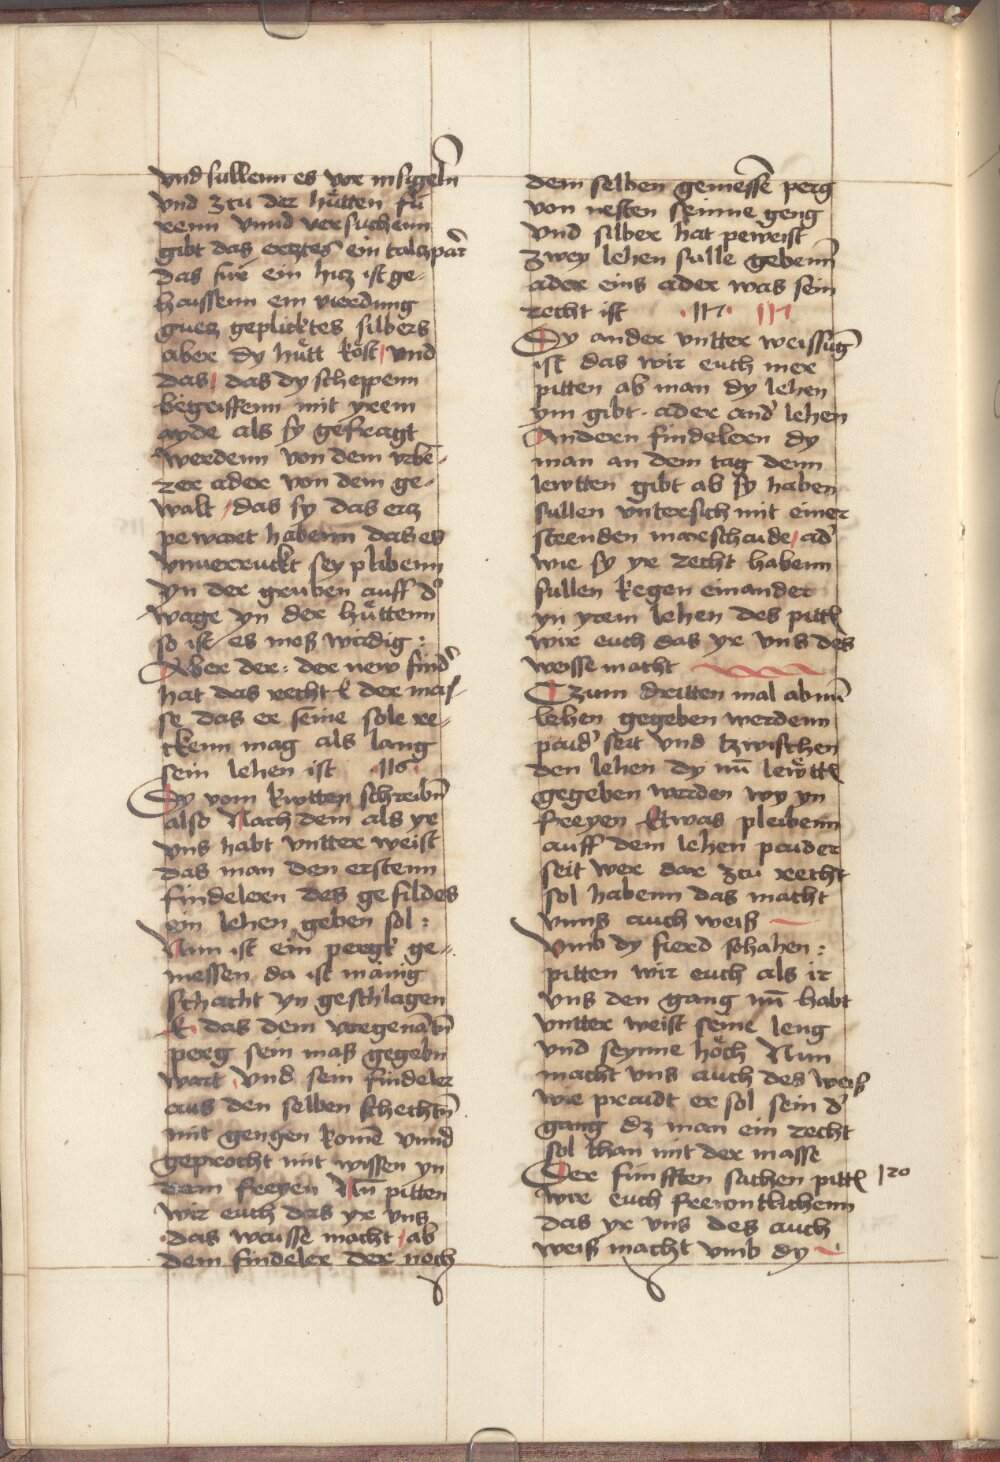 vnd sullenn es vor insigeln̄
vnd zcu der hütten fü
renn vnnd versuchenn
gibt das ercztes ein talczpar
das für ein hicz ist ge-
haissenn ein vierdung
guecz geplicktes silbers
aber dy hütt kost / vnd
das / das dy scheppenn
begriffenn mit yrem
ayde als sy gefragt
werdenn von dem vrbe-
rer ader von dem ge-
walt / das sy das ercz
pewart habenn das es
vnuerruckt sey plibenn
yn der gruben auff d'
wage yn der hüttenn
so ist es mes wirdig :
Aber der · der new find'
hat das recht der mas-
se das er seine sole re-
ckenn mag als lang
sein lehen ist · 116 ·
Dy vom kwtten schreibn̄
also Nach dem als yr
vns habt vntter weist
das man den erstenn
findeleren des gefildes
ein lehen geben sol :
Nun ist ein pergk ge-
messen da ist manig
schacht yn geschlagen
das dem vorgenāt̄n
perg sein mas gegebn
wart / vnd sein findeler
aus den selben schecht̄n
mit gengen komē vnnd
geprocht mit wissen yn
dem freyen Nū pitten
wir euch das yr vns
das weisse macht / ab
dem findeler der noch
dem selben gemessē perg
von nesten seinne geng
vnd silber hat peweist
zwey lehen sulle gebenn̄
ader eins ader was sein
recht ist · 117 · 117
Dy ander vntter weissūg
ist das wir euch mer
pitten ab man dy lehen
ym gibt · ader and' lehen
Andern findelern dy
man an dem tag denn
lewtten gibt ab sy haben
sullen vntersich mit einer
steenden marschaide / ad'
wie sy yr recht habenn
sullen kegen einander
yn yrem lehen des pitt
wir euch das yr vns des
weisse macht
Czum dritten mal ab nū
lehen gegeben werdenn
paid' seit vnd tzwischen
den lehen dy nū lewtt
gegeben werden wy yn
freyen Etwas pleibenn
auff dem lehen paider
seit wer dar zcu recht
sol habenn das macht
vnns auch weis
Vmb dy fierd sohahen :
pitten wir euch als ir
vns den gang nū habt
vntter weist seine leng
vnd seynne höch Nun
macht vns auch des weis
wie praidt er sol sein d'
gang dz man ein recht
sol than mit der masse
Der funfften sachen pitt 120
wir euch freuntlichenn
das yr vns des auch
weis macht vmb dy